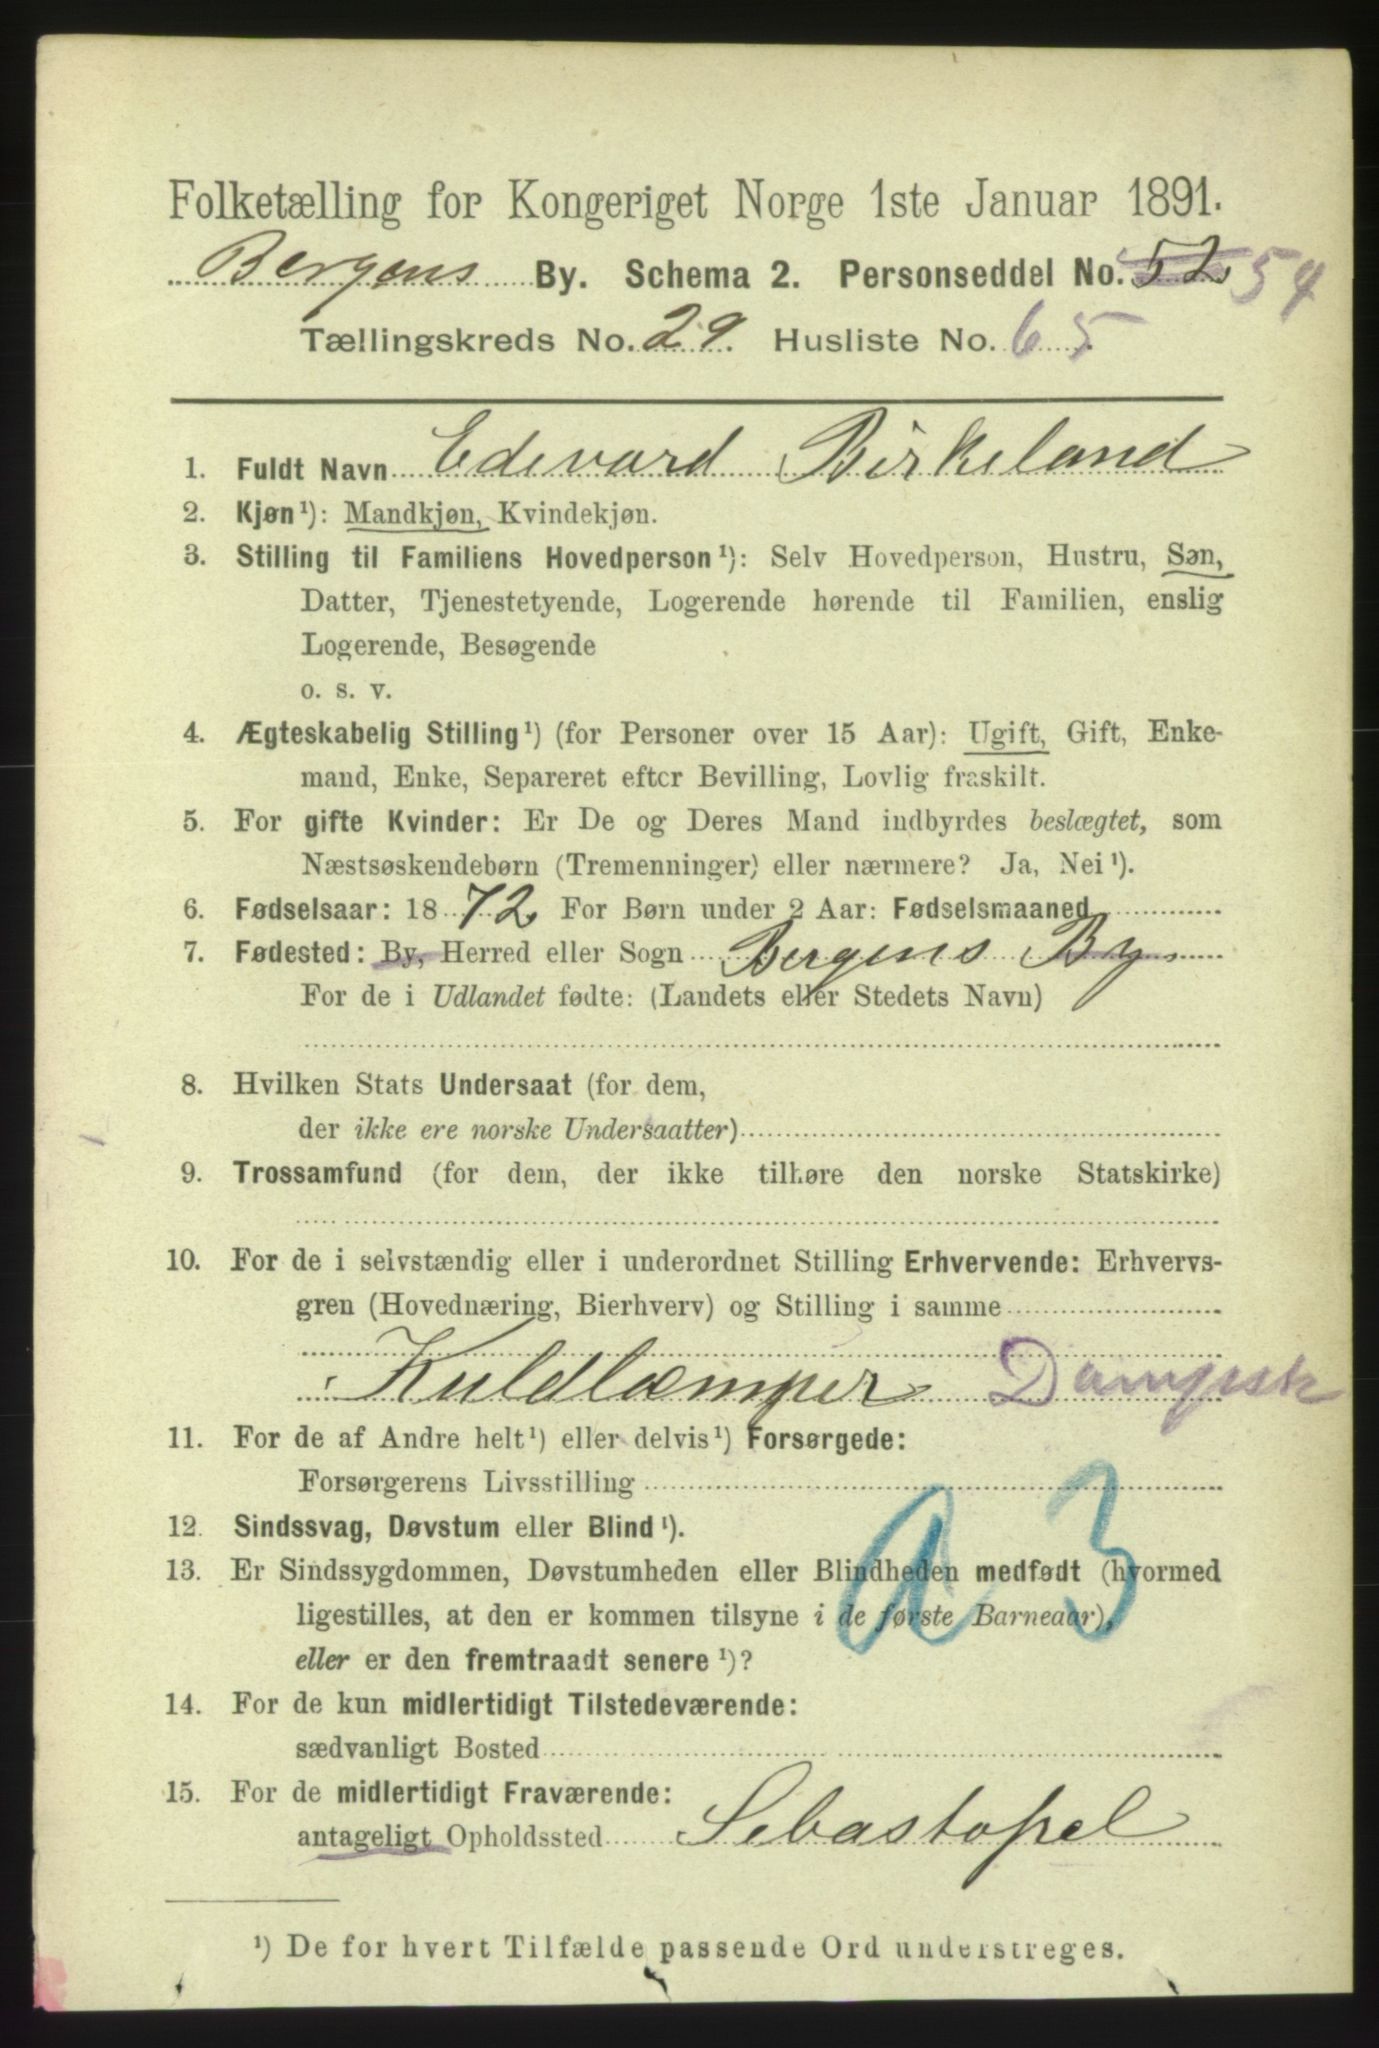 Folketælling for Kongeriget Norge 1ste Januar 1891.
Bergens By. Schema 2. Personseddel No. 52 54
Tællingskreds No. 29. Husliste No. 65.
1. Fuldt Navn Edevard Birkeland
2. Kjøn¹): Mandkjøn, Kvindekjøn.
3. Stilling til Familiens Hovedperson¹): Selv Hovedperson, Hustru, Søn,
Datter, Tjenestetyende, Logerende hørende til Familien, enslig
Logerende, Besøgende
o. s. v.
4. Ægteskabelig Stilling¹) (for Personer over 15 Aar): Ugift, Gift, Enke-
mand, Enke, Separeret efter Bevilling, Lovlig fraskilt.
5. For gifte Kvinder: Er De og Deres Mand indbyrdes beslægtet, som
Næstsøskendebørn (Tremenninger) eller nærmere? Ja, Nei¹).
6. Fødselsaar: 1872 For Børn under 2 Aar: Fødselsmaaned
7. Fødested: By, Herred eller Sogn Bergens By
For de i Udlandet fødte: (Landets eller Stedets Navn)
8. Hvilken Stats Undersaat (for dem,
der ikke ere norske Undersaatter)
9. Trossamfund (for dem, der ikke tilhøre den norske Statskirke)
10. For de i selvstændig eller i underordnet Stilling Erhvervende: Erhvervs-
gren (Hovednæring, Bierhverv) og Stilling i samme
Kuldlæmper Dampsk
11. For de af Andre helt¹) eller delvis¹) Forsørgede:
Forsørgerens Livsstilling
12. Sindssvag, Døvstum eller Blind¹).
a 3
13. Er Sindssygdommen, Døvstumheden eller Blindheden medfødt (hvormed
ligestilles, at den er kommen tilsyne i de første Barneaar),
eller er den fremtraadt senere¹)?
14. For de kun midlertidigt Tilstedeværende:
sædvanligt Bosted
15. For de midlertidigt Fraværende:
antageligt Opholdssted Sebastopel
¹) De for hvert Tilfælde passende Ord understreges.